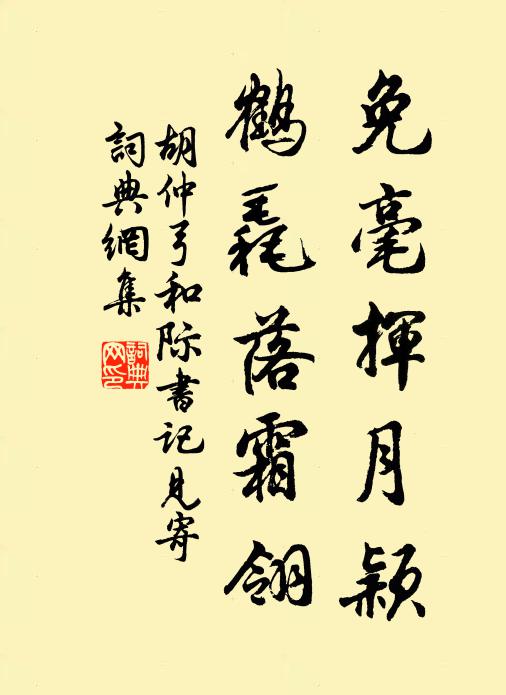 免毫揮月颖
鶴毳落霜翎
胡仲弓和际書记見寄
詞典網集
詞典网印